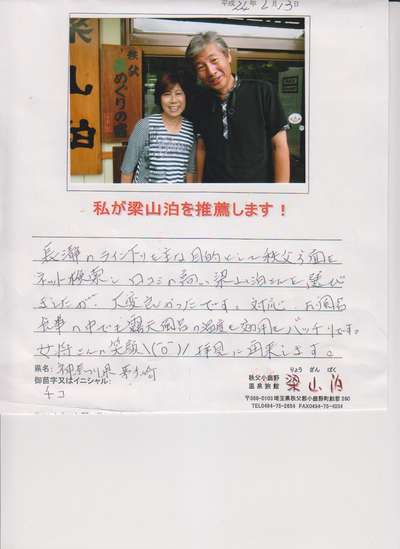 平成24年6月13日
梁山泊
秩父
湯めぐりの宿
私が梁山泊を推薦します！
長瀞のライン下りを主な目的として秩父方面を
ネット検索し口コミの高い梁山泊さんを選び
ましたが、大変良かったです。対応、お風呂
食事の中でも露天風呂の温度も効用もバッチリです。
女将さんの笑顔\(^o^)/拝見に再来します。
県名:神奈川県
御苗字又はイニシャル:
チコ
秩父小鹿野
温泉旅館
りょう ざん ぱく
梁山泊
〒368-0103埼玉県秩父郡小鹿野町般若360
TEL0494-75-2654 FAX0494-75-4254